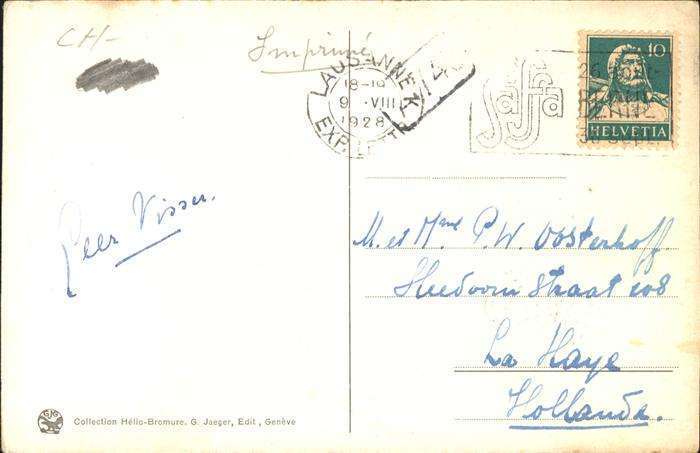 CH-
Imprimé
LAUSANNE
18-19
9. VIII
1928
EXP. LETT
Saffa
10
BERNE
HELVETIA
Peer Visser.
M. et Mme P. W. Oosterhoff
108
La Haye
Hollande.
Collection Hélio-Bromure. G. Jaeger, Edit, Genève